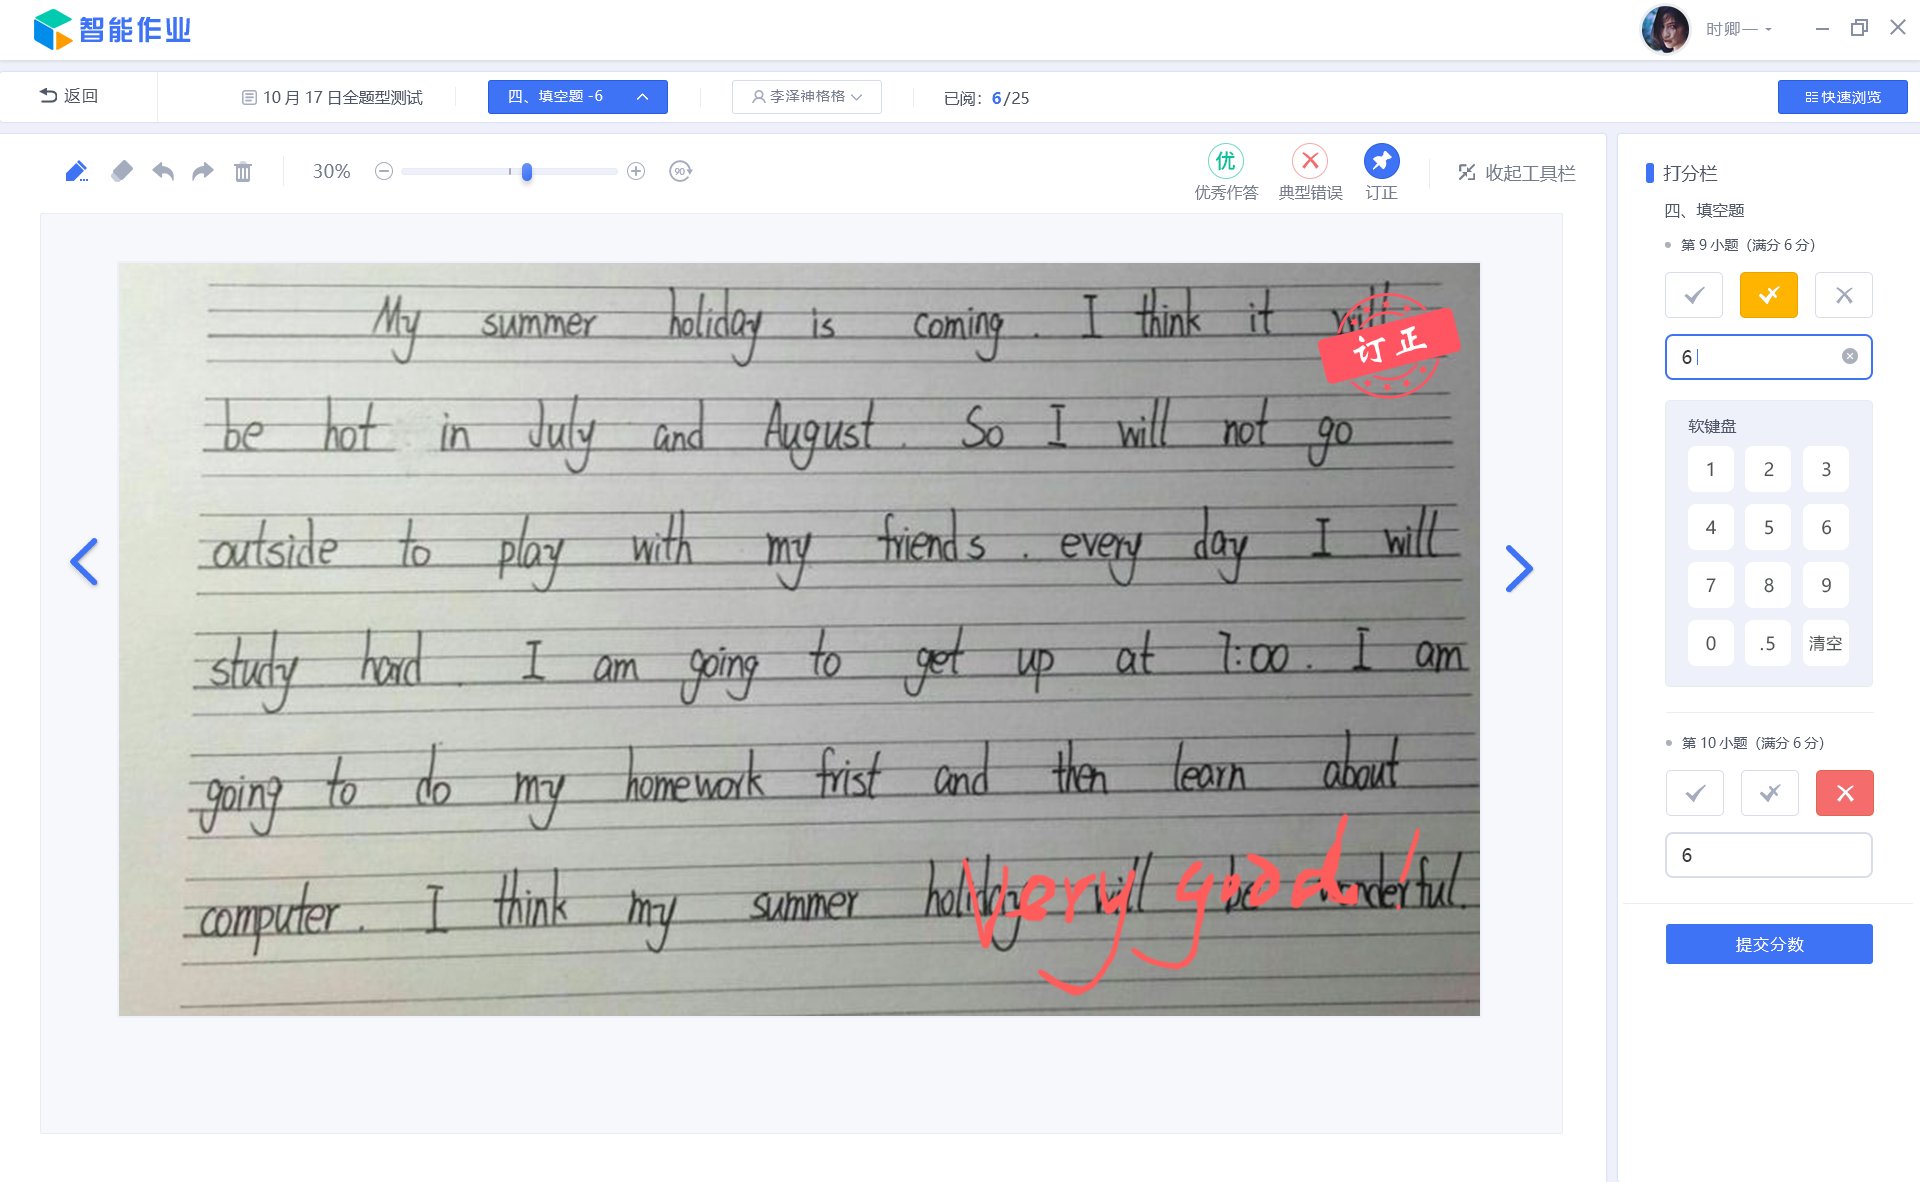 智能作业
时卿一
返回
10月17日全题型测试
四、填空题 -6
李泽神格格
已阅: 6/25
快速浏览
30%
90
优
优秀作答
典型错误
订正
收起工具栏
My summer holiday is coming. I think it will
订正
be hot in July and August. So I will not go
outside to play with my friends. every day I will
study hard. I am going to get up at 7:00. I am
going to do my homework frist and then learn about
computer. I think my summer holiday will be wonderful.
Very good!
打分栏
四、填空题
第9小题（满分6分）
6
软键盘
1 2 3
4 5 6
7 8 9
0 .5 清空
第10小题（满分6分）
6
提交分数